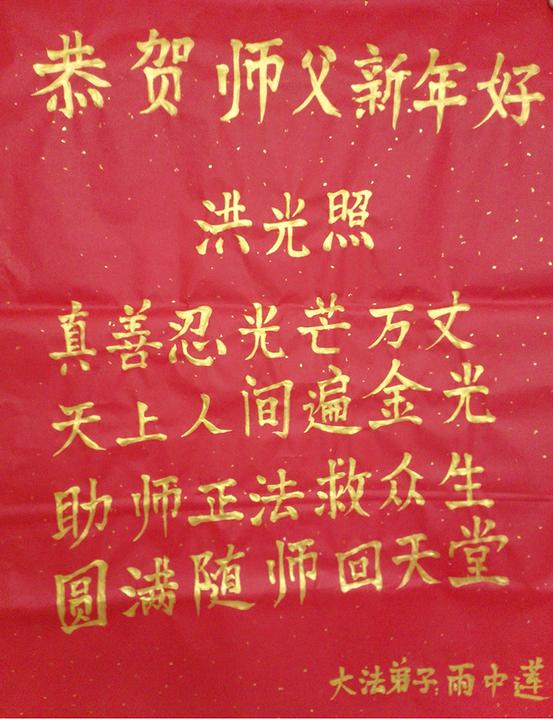 恭贺师父新年好
洪光照
真善忍光芒万丈
天上人间遍金光
助师正法救众生
圆满随师回天堂
大法弟子:雨中莲